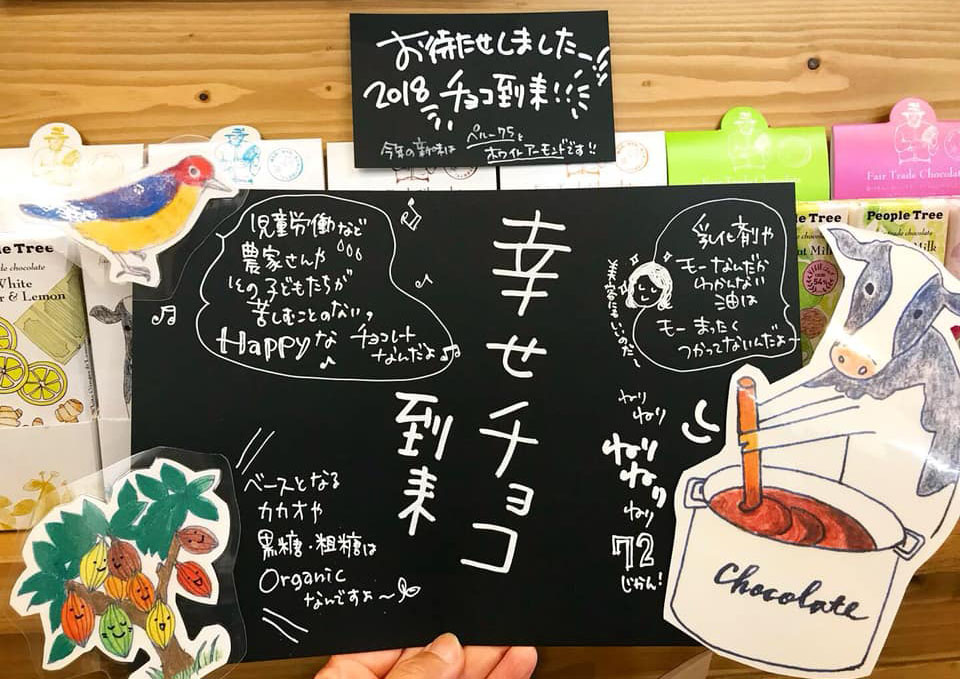 お待たせしましたー!!
2018 チョコ到来!!
今年の新味は ペルー75と
ホワイトアーモンドです!!
Fair Trade Chocolate
Fair Trade Chocola
児童労働など
農家さんや
その子どもたちが
苦しむことのない
Happyな チョコレート
なんだよ
幸せチョコ
到来
乳化剤や
モーなんだか
わかんない
油は
モーまったく
つかってないんだよ〜
ねり
ねり
ねり
ねり
ねり
72
じかん!
ベースとなる
カカオや
黒糖・粗糖は
Organic
なんですよ〜
chocolate
le Tree
chocolate
White
r & Lemon
e Tree
People Tree
Milk